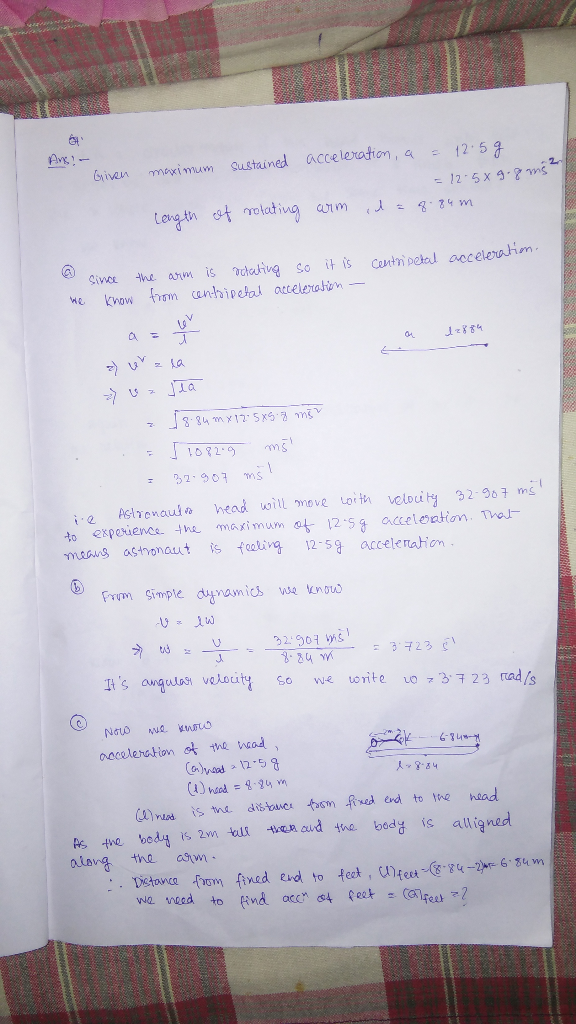 Q.
Ans:-
Given maximum sustained acceleration, a = 12.5g
= 12.5 x 9.8 ms⁻²
Length of rotating arm, l = 8.84 m
(a) Since the arm is rotating so it is centripetal acceleration.
We know from centripetal acceleration —
a = v²/l
a l=8.84
=> v² = la
=> v = √la
= √8.84m x 12.5x9.8 ms⁻²
= √1082.9 ms⁻¹
= 32.907 ms⁻¹
i.e Astronauts head will move with velocity 32.907 ms⁻¹
to experience the maximum of 12.5g acceleration. That
means astronaut is feeling 12.5g acceleration.
(b) From simple dynamics we know
v = lω
=> ω = v/l = 32.907 ms⁻¹/8.84 m = 3.723 s⁻¹
It's angular velocity so we write ω = 3.723 rad/s
(c) Now we know
acceleration of the head,
6.84m
(a)head = 12.5g
l=8.84
(l)head = 8.84 m
(l)head is the distance from fixed end to the head
As the body is 2m tall and the body is alligned
along the arm.
∴ Distance from fixed end to feet, (l)feet = (8.84-2)m = 6.84m
we need to find accⁿ of feet = (a)feet = ?